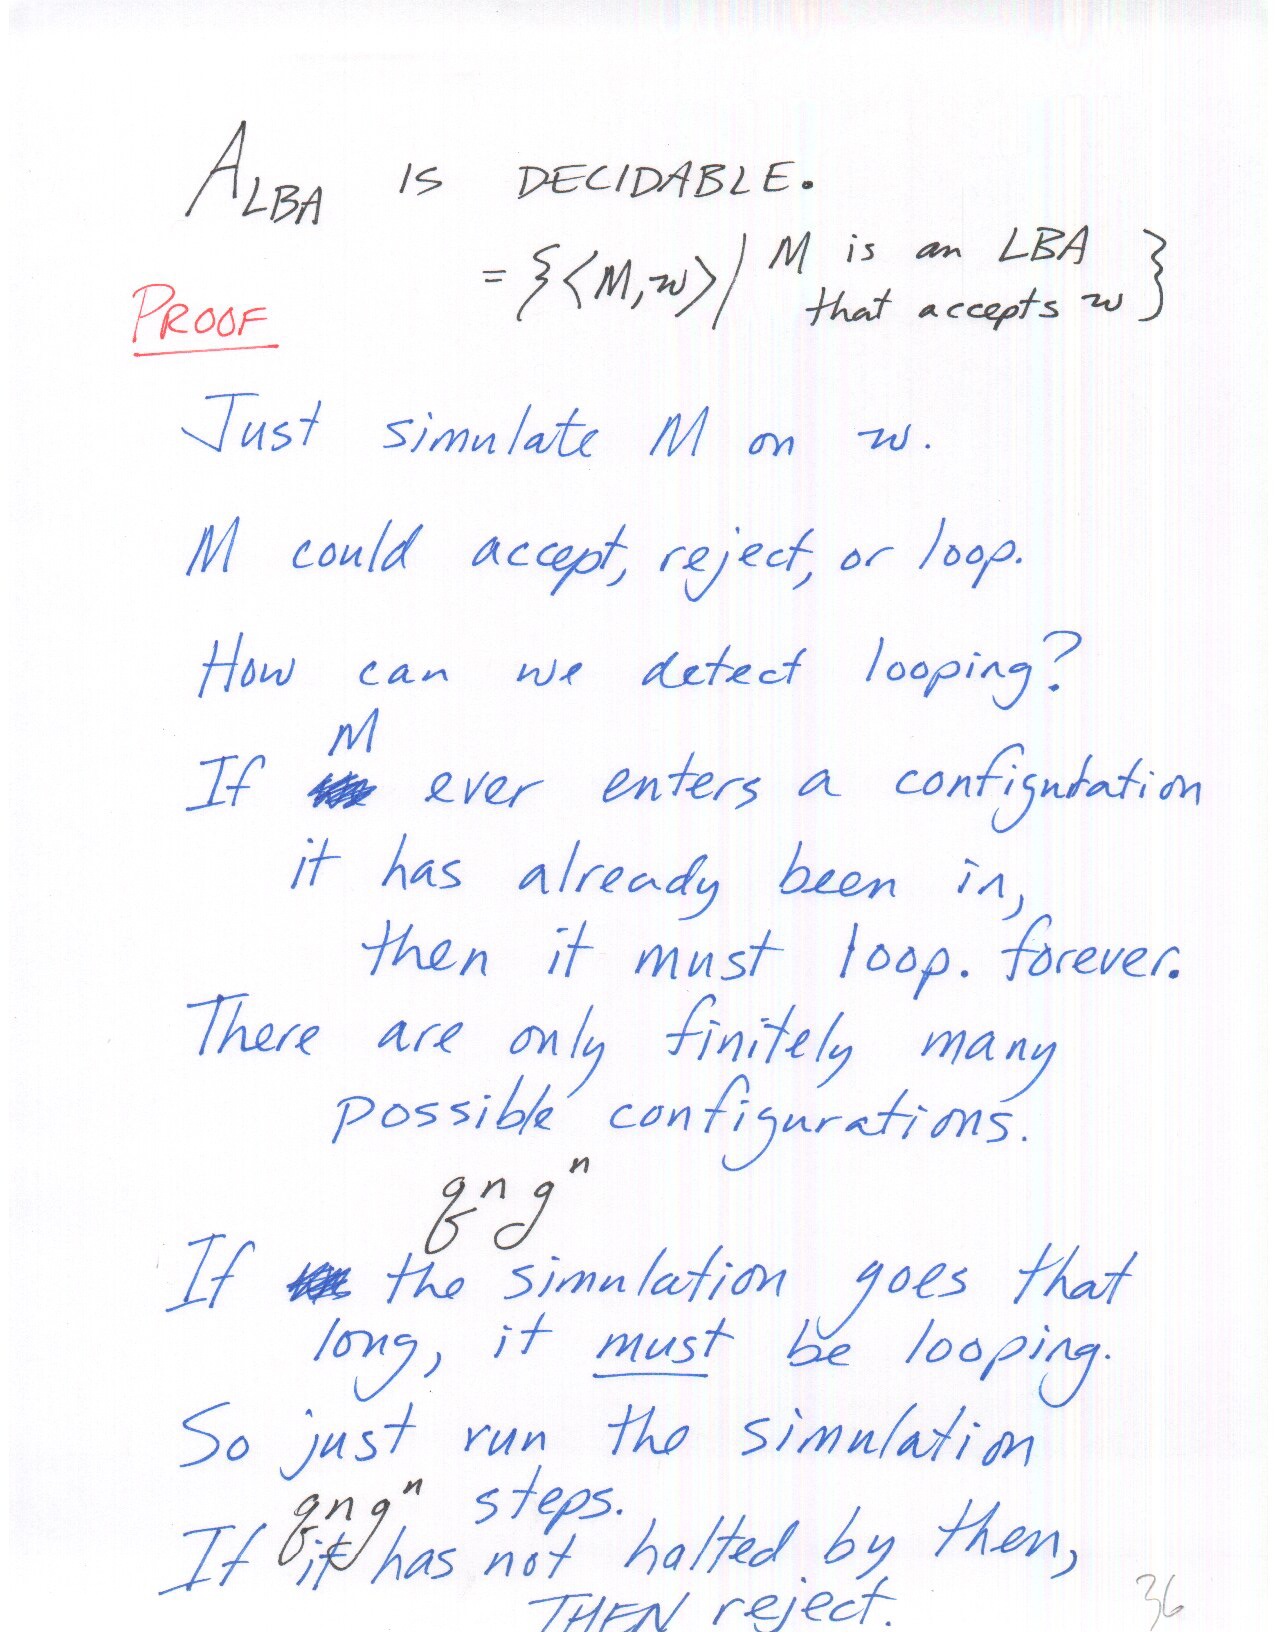 A_LBA IS DECIDABLE.
= {⟨M,w⟩ | M is an LBA
that accepts w }
PROOF
Just simulate M on w.
M could accept, reject, or loop.
How can we detect looping?
If M ever enters a configutation
it has already been in,
then it must loop. forever.
There are only finitely many
possible configurations.
qngⁿ
If the simulation goes that
long, it must be looping.
So just run the simulation
qngⁿ steps.
If it has not halted by then,
THEN reject.
36